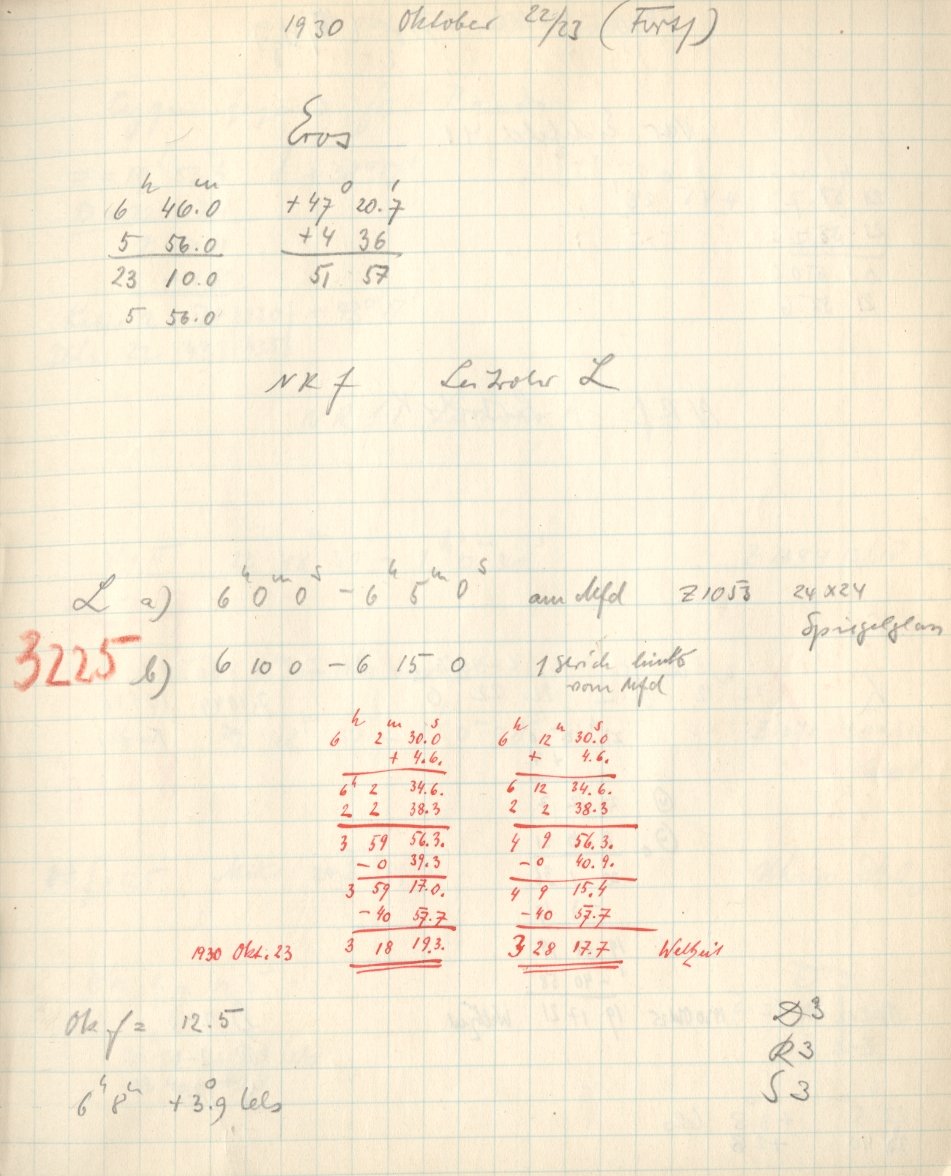 1930 Oktober 22/23 (Forts)
Eros
h m o '
6 46.0 +47 20.7
5 56.0 +4 36
23 10.0 51 57
5 56.0
NK f Leitrohr L
h m s h m s
L a) 6 0 0 - 6 5 0 am Mfd Z1053 24x24
Spiegelglas
3225 b) 6 10 0 - 6 15 0 1 Strich links
vom Mfd
h m s h m s
6 2 30.0 6 12 30.0
+ 4.6. + 4.6.
6h 2 34.6. 6 12 34.6.
2 2 38.3 2 2 38.3
3 59 56.3. 4 9 56.3.
-0 39.3 -0 40.9.
3 59 17.0. 4 9 15.4
-40 57.7 -40 57.7
1930 Okt. 23 3 18 19.3. 3 28 17.7 Weltzeit
Ok f = 12.5 D3
R3
6h 8m +3°.9 Cels S3